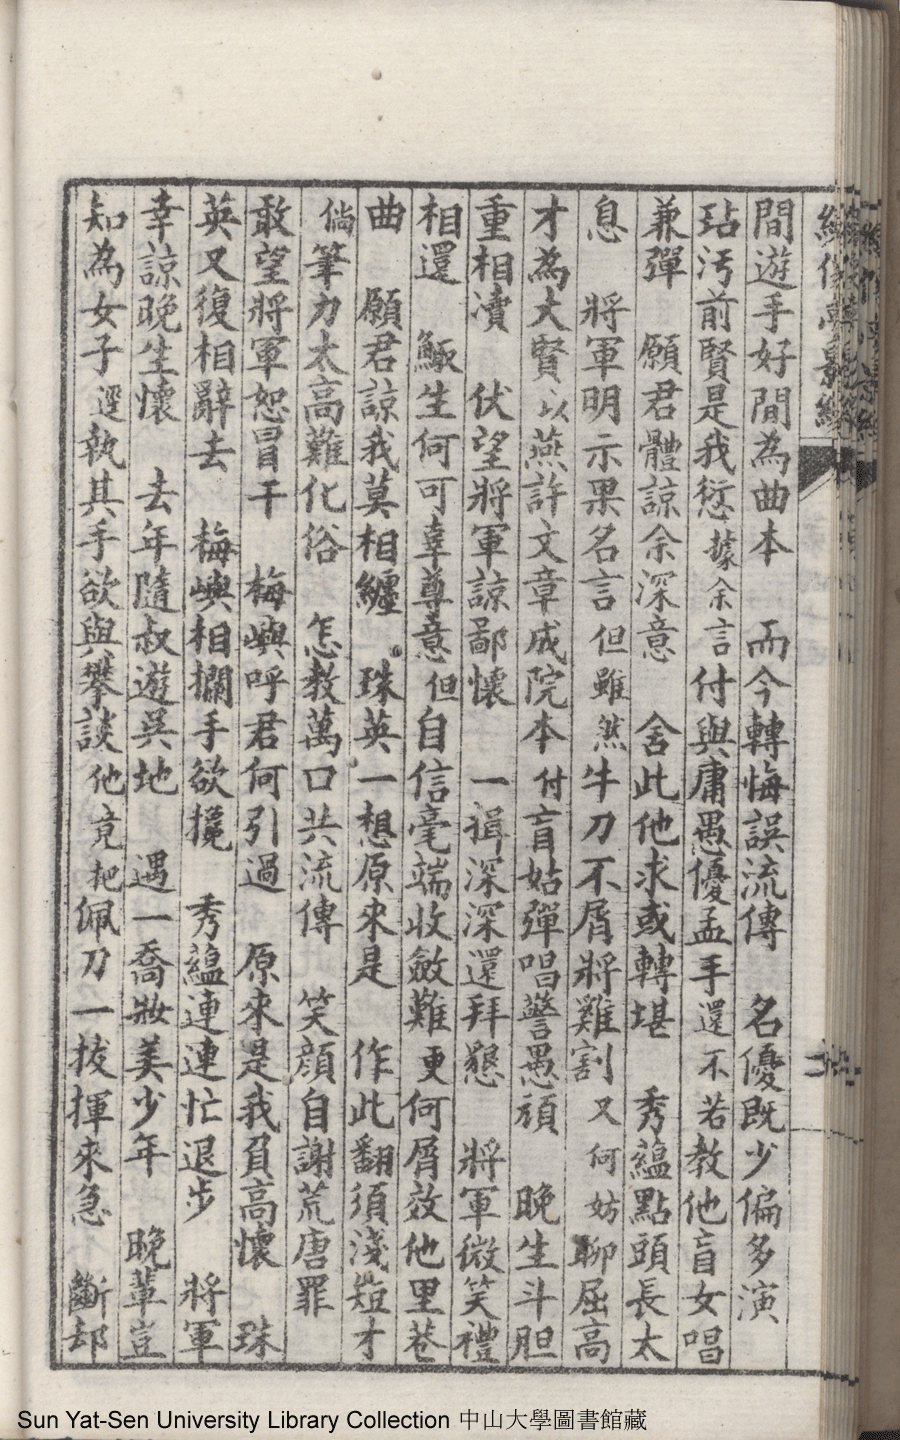 間遊手好閒為曲本　而今轉悔誤流傳　名優既少偏多演
玷汚前賢是我愆據余言付與庸愚優孟手還不若教他盲女唱
兼彈　願君體諒余深意　舍此他求或轉堪　秀蘊點頭長太
息　將軍明示果名言但雖然牛刀不屑將雞割又何妨聊屈高
才為大賢以燕許文章成院本付盲姑彈唱警愚頑　晚生斗胆
重相瀆　伏望將軍諒鄙懷　一揖深深還拜懇　將軍微笑禮
相還　鯫生何可辜尊意但自信毫端收斂難更何屑效他里巷
曲　願君諒我莫相纏　珠英一想原來是　作此翻須淺短才
倘筆力太高難化俗　怎教萬口共流傳　笑顔自謝荒唐罪
敢望將軍恕冒干　梅嶼呼君何引過　原來是我負高懷　珠
英又復相辭去　梅嶼相攔手欲攙　秀蘊連連忙退步　將軍
幸諒晚生懷　去年隨叔遊吳地　遇一喬妝美少年　晚輩豈
知為女子逕執其手欲與攀談他竟把佩刀一拔揮來急　斷却
Sun Yat-Sen University Library Collection 中山大學圖書館藏